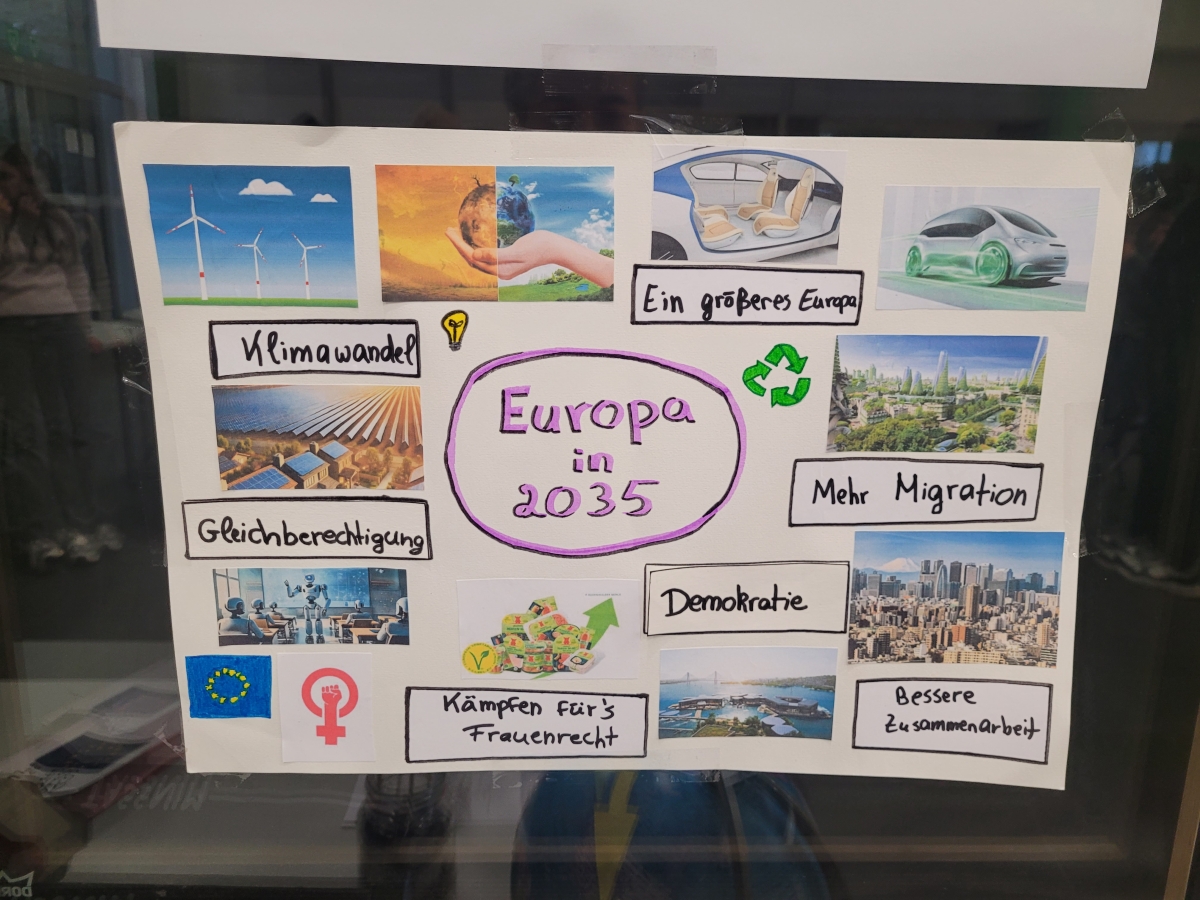 Ein größeres Europa
Klimawandel
Europa
in
2035
Mehr Migration
Gleichberechtigung
Demokratie
Kämpfen für's
Frauenrecht
Bessere
Zusammenarbeit